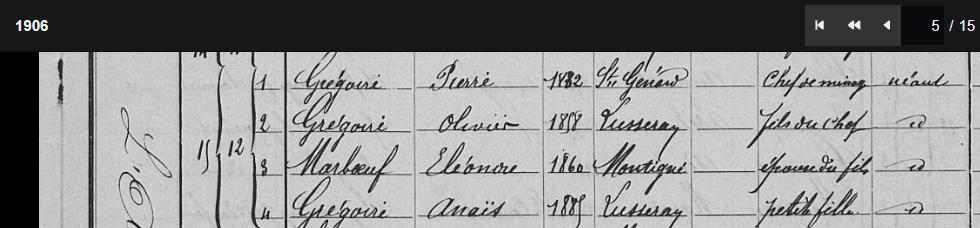 1906
5 / 15
1 Grégoire Pierre 1832 St Génard Chef de ménag néant
2 Grégoire Olivier 1858 Lusseray fils du Chef id
15 12 3 Marbœuf Eléonore 1860 Montigné épouse du fils id
4 Grégoire Anaïs 1885 Lusseray petite fille id